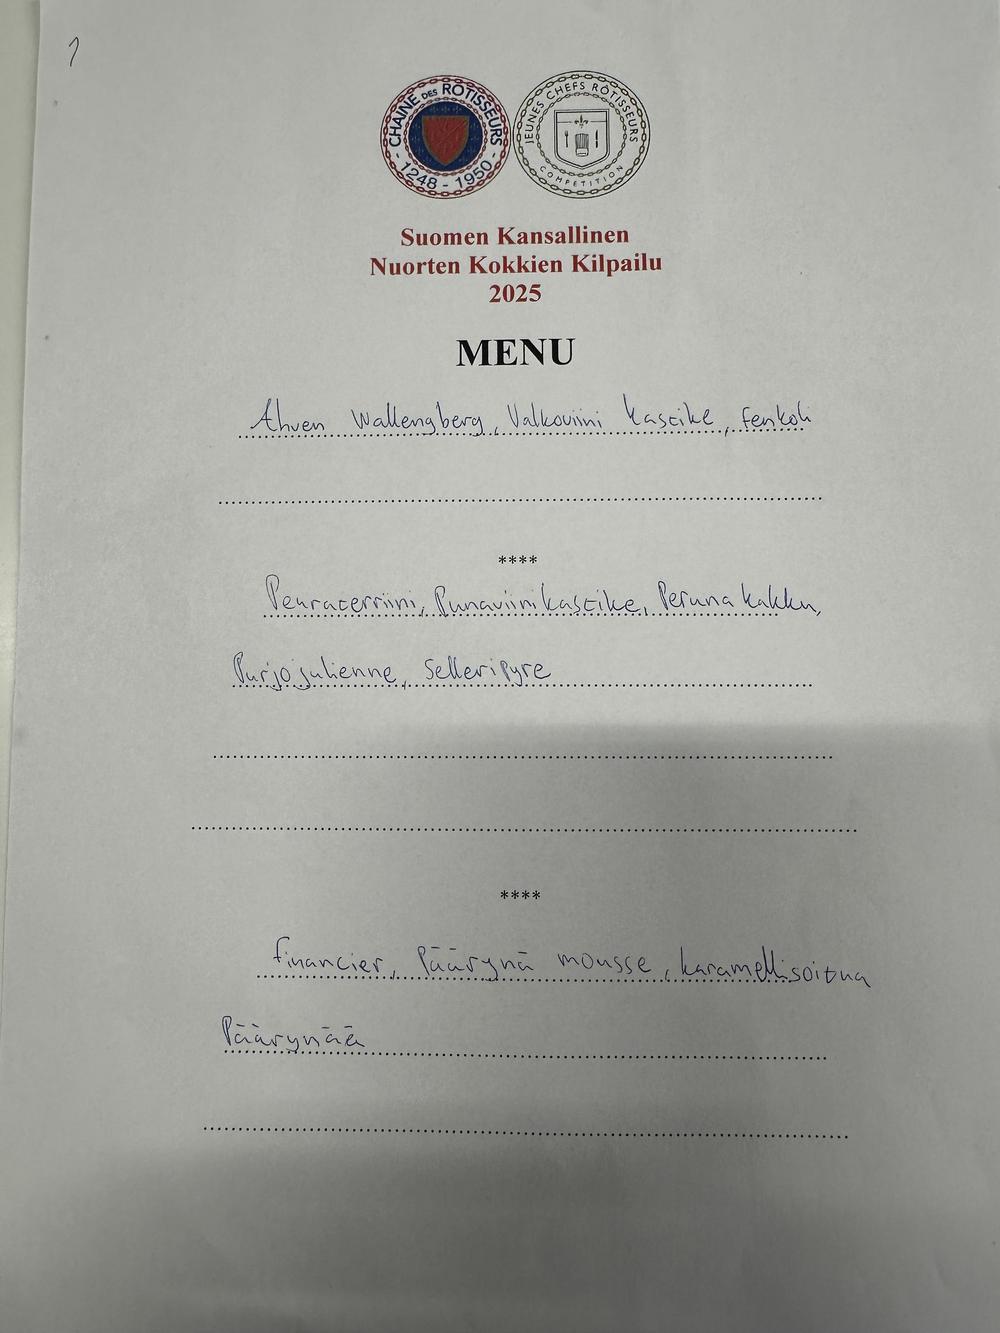 1
CHAINE DES ROTISSEURS
- 1248 - 1950 -
JEUNES CHEFS RÔTISSEURS
COMPETITION
Suomen Kansallinen
Nuorten Kokkien Kilpailu
2025
MENU
Ahven Wallengberg, Valkoviini kastike, fenkoli
****
Peuraterriini, Punaviinikastike, Peruna kakku,
Purjojulienne, Selleripyre
****
financier, Päärynä mousse, karamellisoitua
Päärynää